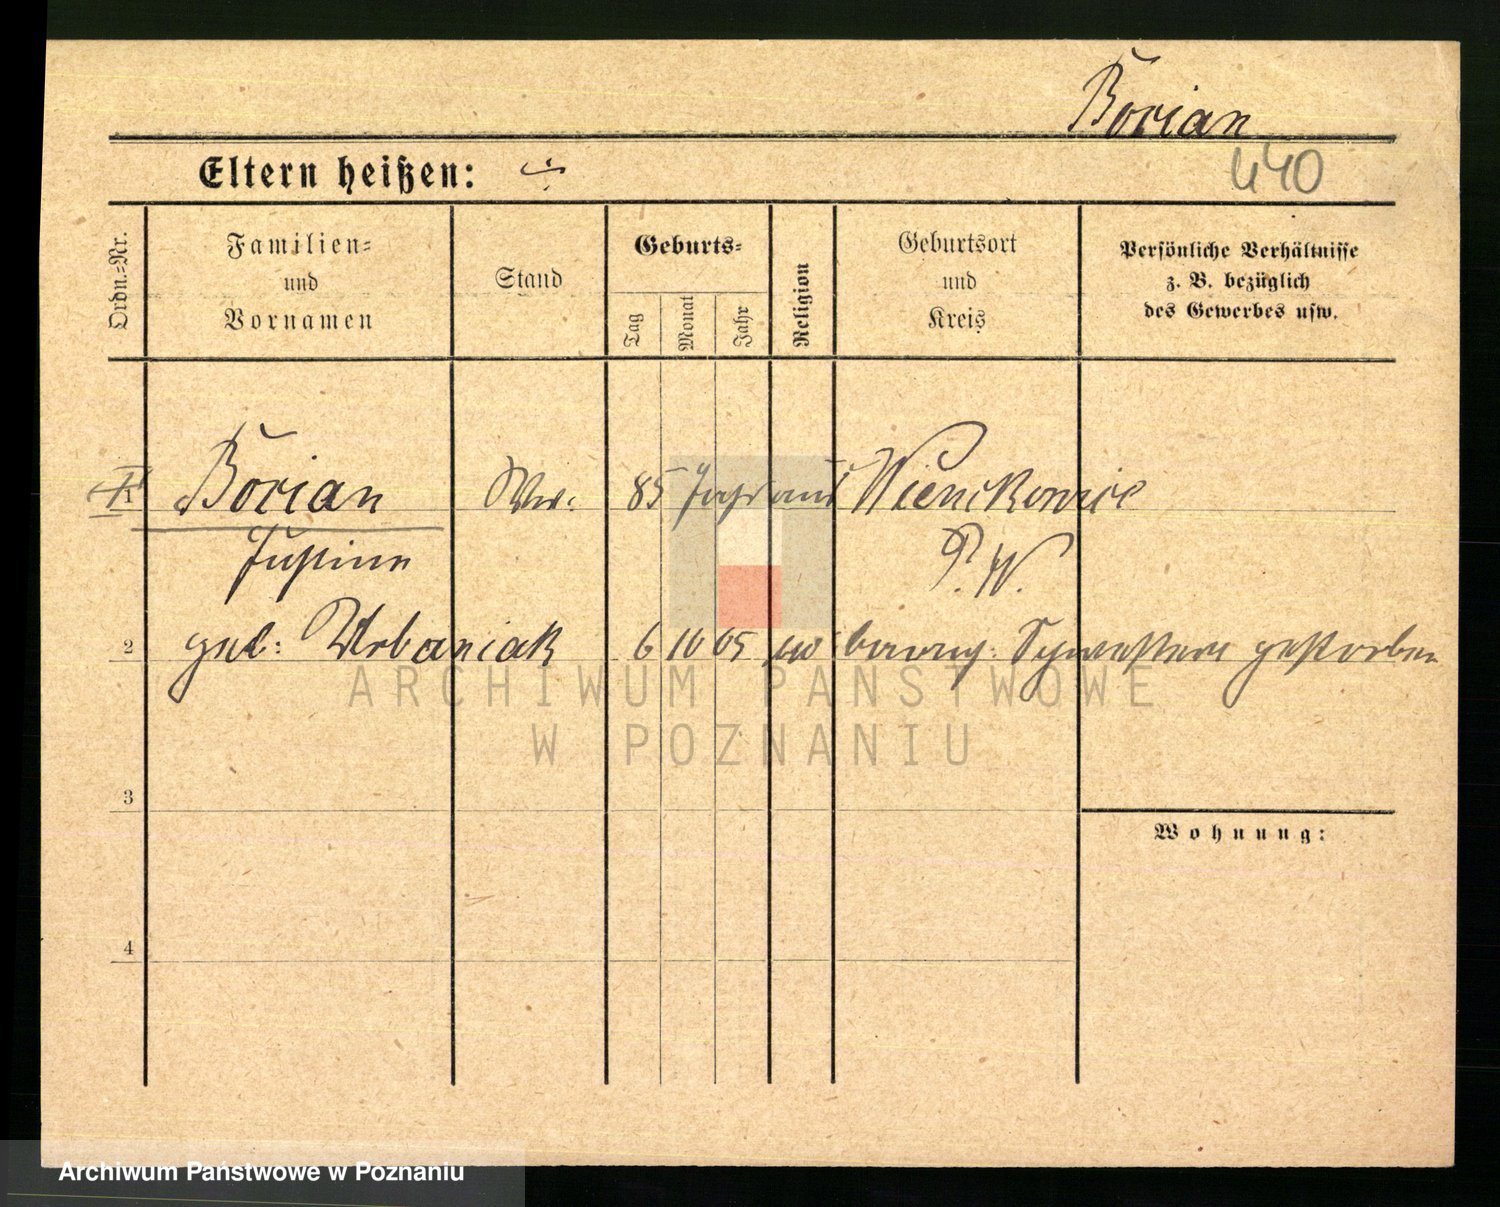 Borian
440
Eltern heißen: ·/·
Ordn.=Nr.
Familien=
und
Vornamen
Stand
Geburts=
Tag
Monat
Jahr
Religion
Geburtsort
und
Kreis
Persönliche Verhältnisse
z. B. bezüglich
des Gewerbes usw.
1 Borian Ww. 85 Jahr alt Wienckowice
Justine P. W.
2 geb: Urbaniak 6 10 05 bei Schwestern gestorben
3
Wohnung:
4
ARCHIWUM PAŃSTWOWE
W POZNANIU
Archiwum Państwowe w Poznaniu